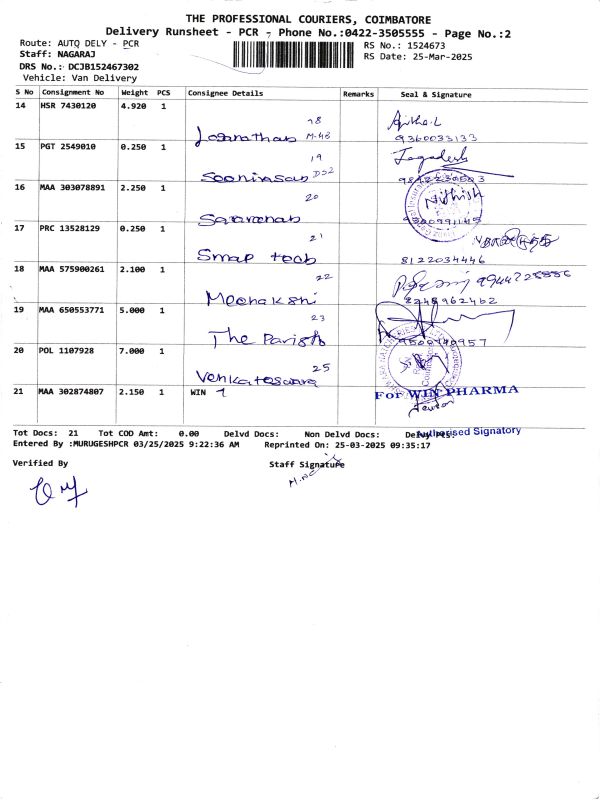 THE PROFESSIONAL COURIERS, COIMBATORE
Delivery Runsheet - PCR , Phone No.:0422-3505555 - Page No.:2
Route: AUTO DELY - PCR
RS No.: 1524673
Staff: NAGARAJ
RS Date: 25-Mar-2025
DRS No.: DCJB152467302
Vehicle: Van Delivery
S No Consignment No Weight PCS Consignee Details Remarks Seal & Signature
14 HSR 7430120 4.920 1
18
M-46
9360033133
15 PGT 2549010 0.250 1
19
Jagadesh
Soonivasan
16 MAA 303078891 2.250 1
20
Nithish
Saravanan
17 PRC 13528129 0.250 1
21
Smap tech 8122034446
18 MAA 575900261 2.100 1
22
Meenakshi
19 MAA 650553771 5.000 1
23
The Parish 9500940957
20 POL 1107928 7.000 1
25
Venkateswara
21 MAA 302874807 2.150 1 WIN 1 For WIN PHARMA
Tot Docs: 21 Tot COD Amt: 0.00 Delvd Docs: Non Delvd Docs: Authorised Signatory
Entered By :MURUGESHPCR 03/25/2025 9:22:36 AM Reprinted On: 25-03-2025 09:35:17
Verified By Staff Signature